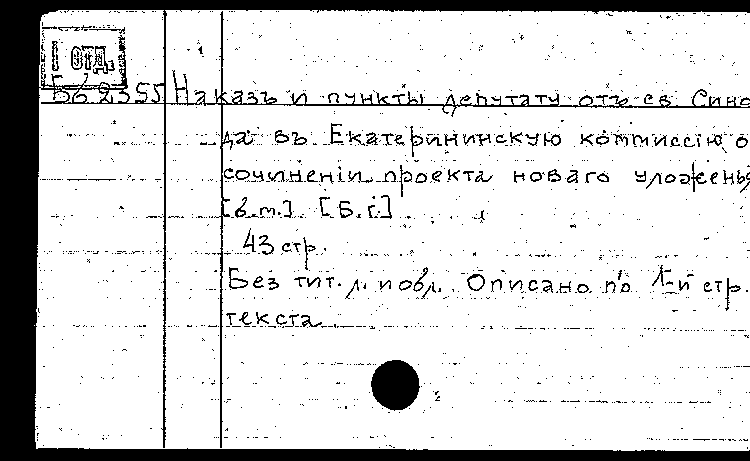 II ОТД.
562355 Наказъ и пункты депутату отъ св. Сино
да въ Екатерининскую коммиссію о
сочиненіи проекта новаго уложенья
[б.т.] [Б.г.]
43 стр.
Без тит. л. и обл. Описано по 1-й стр.
текста.